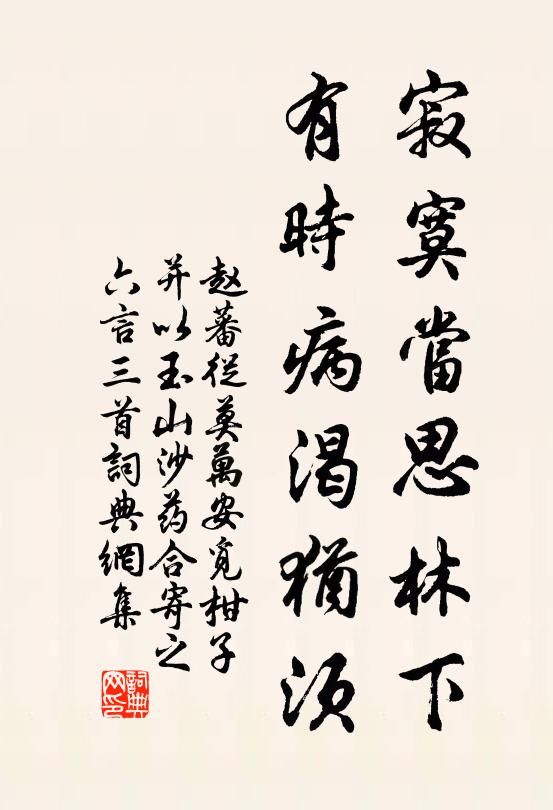 寂寞當思林下
有時病渴猶須
赵蕃從莫萬安覓柑子
并以玉山沙药合寄之
六言三首詞典網集
詞典网印